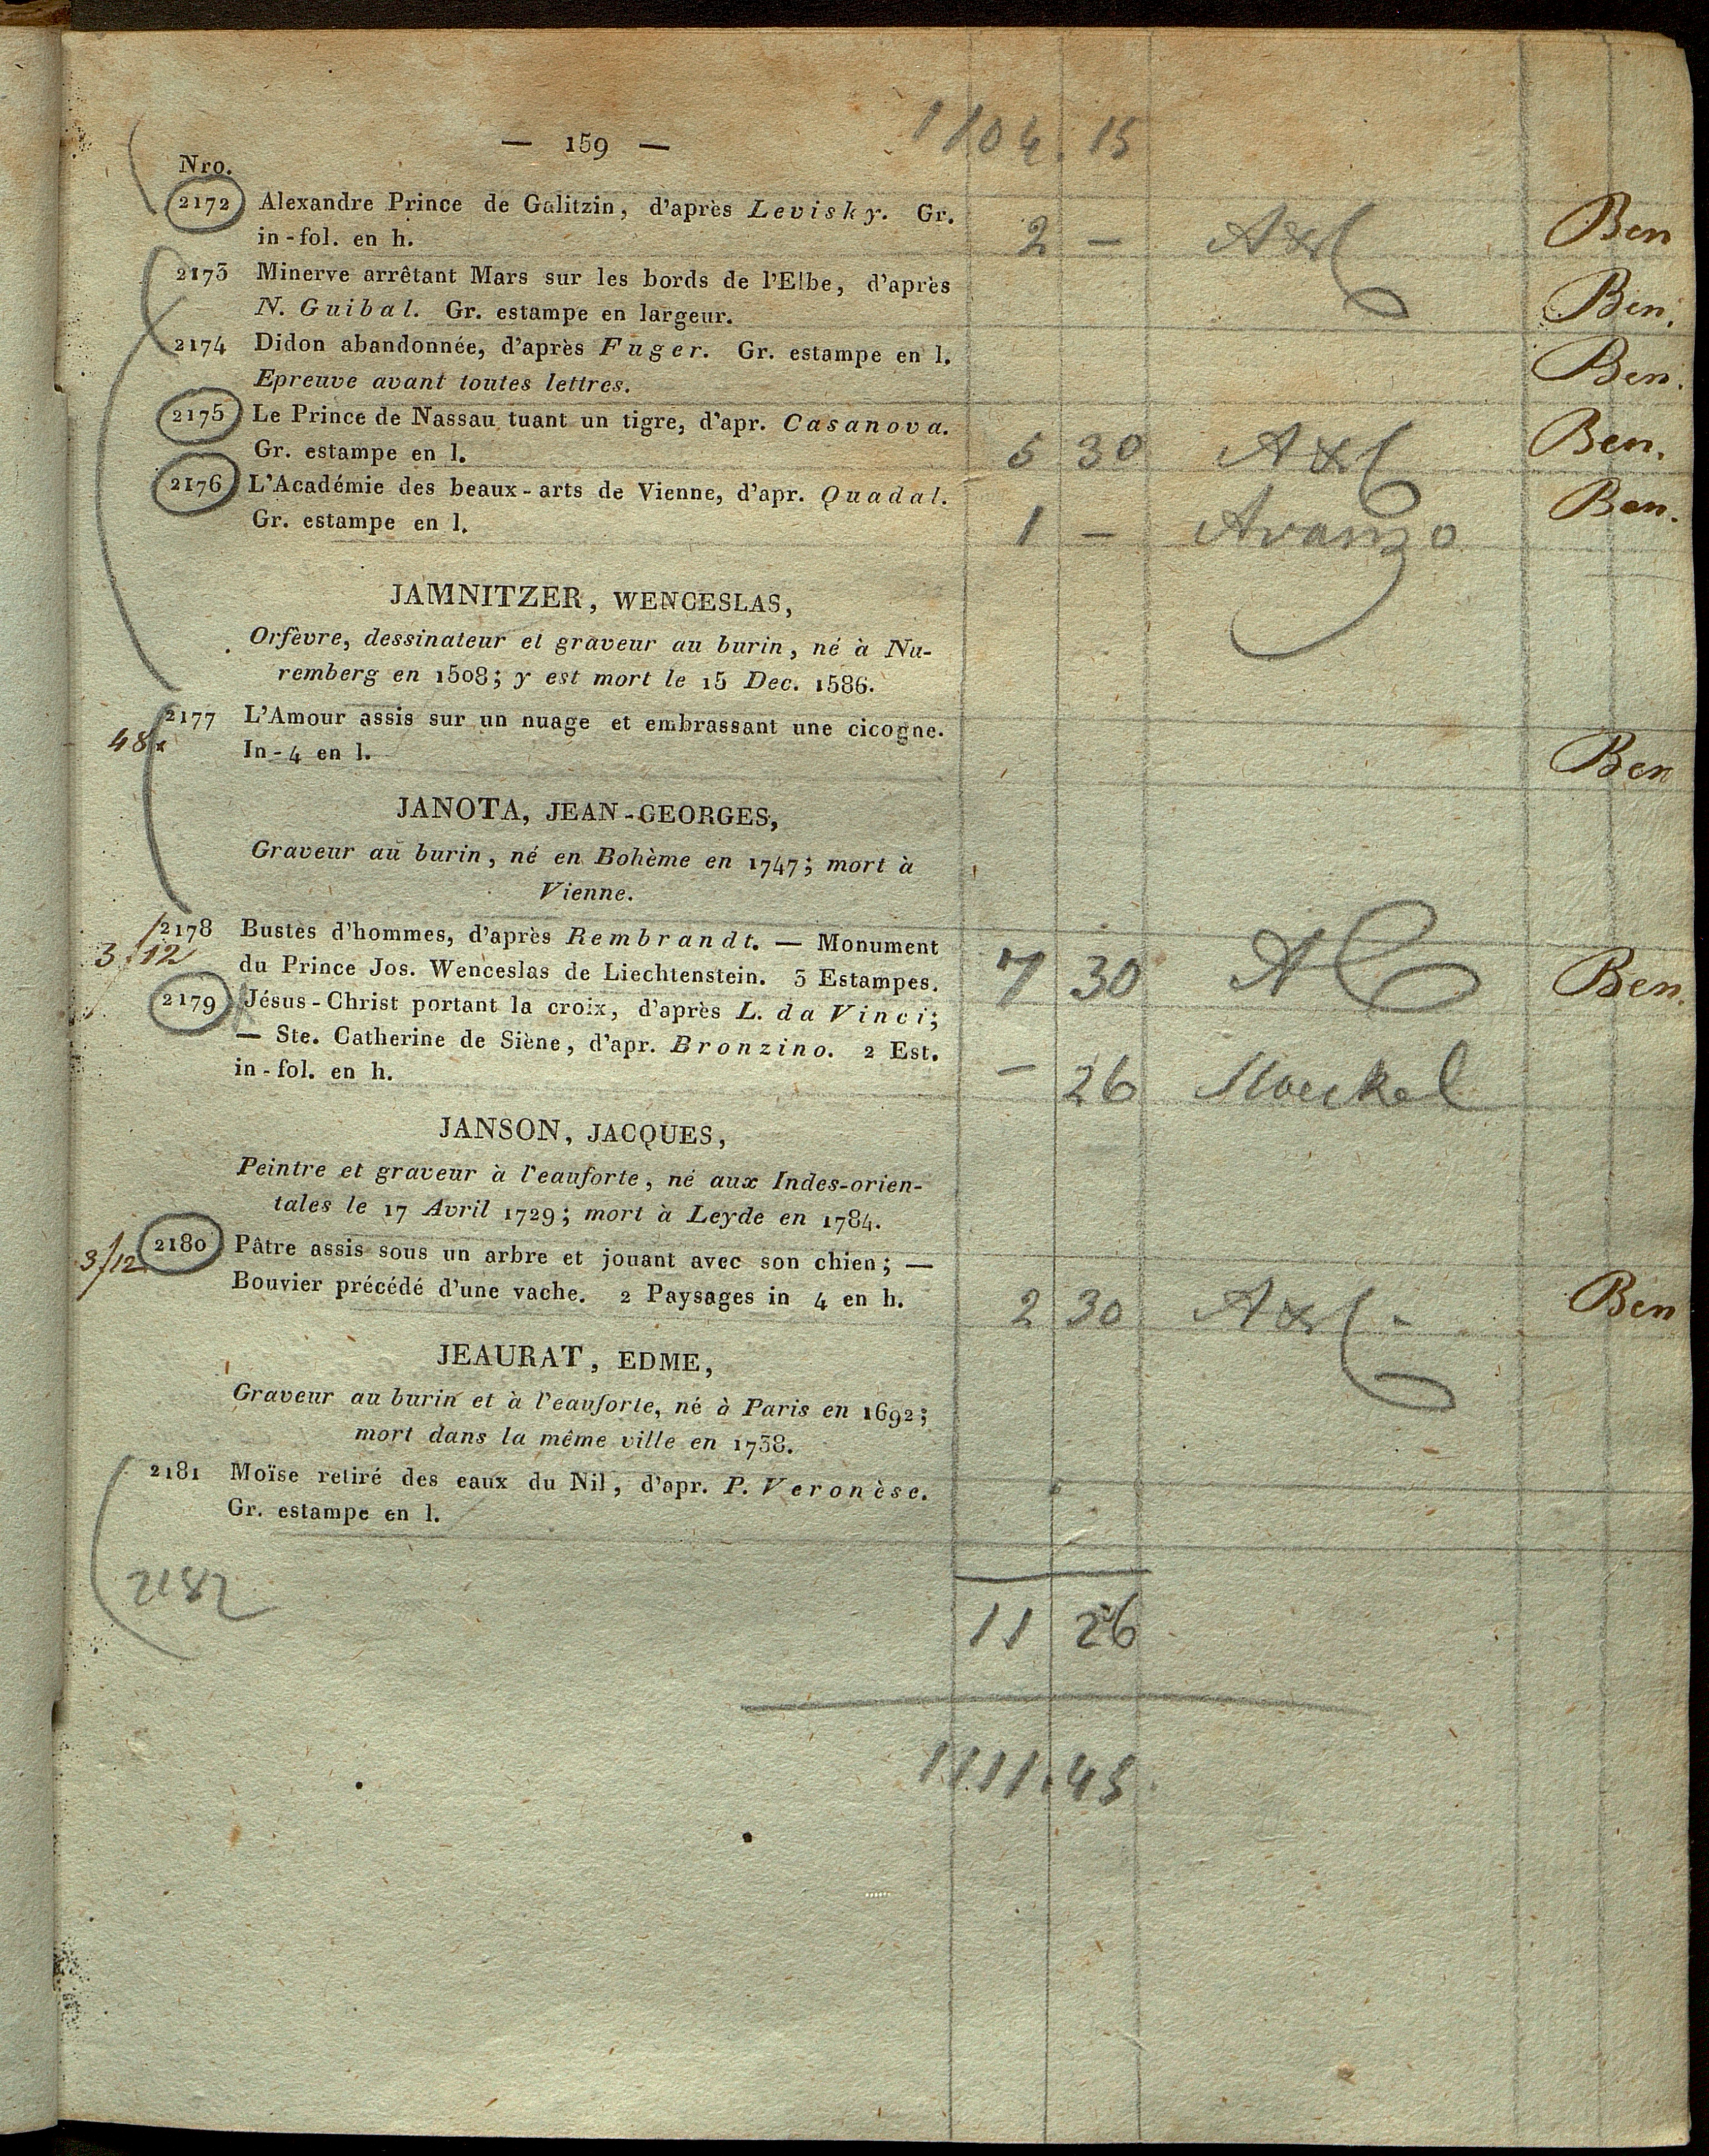 — 159 —
1104.15
Nro.
2172 Alexandre Prince de Galitzin, d'après Levisky. Gr.
in-fol. en h.
2 — Axl Ben
2173 Minerve arrêtant Mars sur les bords de l'Elbe, d'après
N. Guibal. Gr. estampe en largeur.
Ben.
2174 Didon abandonnée, d'après Fuger. Gr. estampe en l.
Epreuve avant toutes lettres.
Ben.
2175 Le Prince de Nassau tuant un tigre, d'apr. Casanova.
Gr. estampe en l.
5 30 Axl Ben.
2176 L'Académie des beaux-arts de Vienne, d'apr. Quadal.
Gr. estampe en l.
1 — Avanzo Ben.
JAMNITZER, WENCESLAS,
Orfèvre, dessinateur et graveur au burin, né à Nu-
remberg en 1508; y est mort le 15 Dec. 1586.
2177 L'Amour assis sur un nuage et embrassant une cicogne.
In-4 en l.
48x
Ben
JANOTA, JEAN-GEORGES,
Graveur au burin, né en Bohème en 1747; mort à
Vienne.
2178 Bustes d'hommes, d'après Rembrandt. — Monument
3/12
du Prince Jos. Wenceslas de Liechtenstein. 3 Estampes.
7 30 Ben.
2179 Jésus-Christ portant la croix, d'après L. da Vinci;
— Ste. Catherine de Siène, d'apr. Bronzino. 2 Est.
in-fol. en h.
— 26
JANSON, JACQUES,
Peintre et graveur à l'eauforte, né aux Indes-orien-
tales le 17 Avril 1729; mort à Leyde en 1784.
2180 Pâtre assis sous un arbre et jouant avec son chien; —
3/12
Bouvier précédé d'une vache. 2 Paysages in 4 en h.
2 30 Axl Ben
JEAURAT, EDME,
Graveur au burin et à l'eauforte, né à Paris en 1692;
mort dans la même ville en 1738.
2181 Moïse retiré des eaux du Nil, d'apr. P. Veronèse.
Gr. estampe en l.
2182
11 26
1111.45